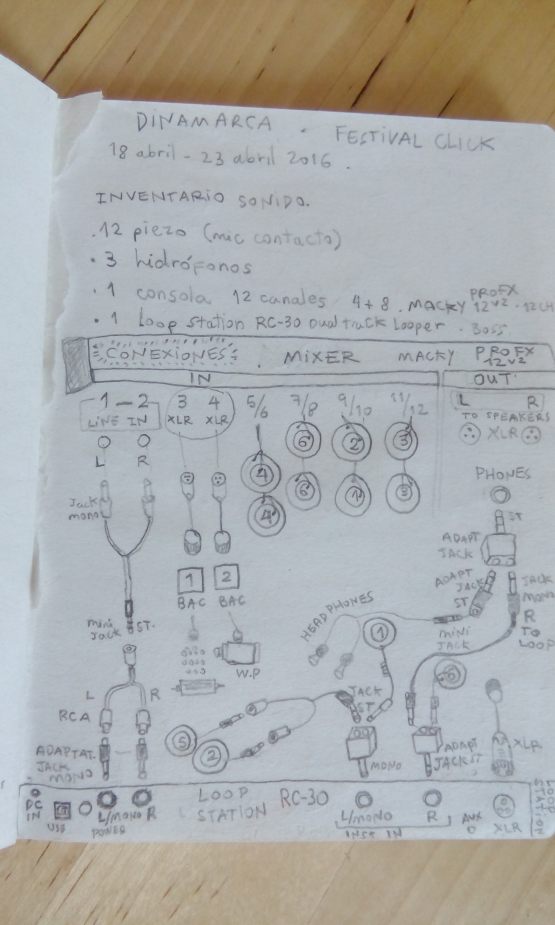 DINAMARCA . FESTIVAL CLICK
18 abril - 23 abril 2016 .
INVENTARIO SONIDO.
. 12 piezo (mic contacto)
. 3 hidrófonos
. 1 consola 12 canales / 4+8 . MACKY PROFX 12v2 . 12CH
. 1 Loop Station RC-30 Dual track Looper . BOSS.
CONEXIONES: . MIXER MACKY PROFX 12V2
IN OUT
1-2 3 4 5/6 7/8 9/10 11/12 L R
LINE IN XLR XLR TO SPEAKERS
XLR
L R
4 6 2 3
4 6 1 3
PHONES
JACK MONO
ST
ADAPT JACK
1 2
BAC BAC
ADAPT JACK ST
JACK MONO R TO LOOP
mini Jack ST.
HEADPHONES
1
MINI JACK
W.P
6
L R
RCA
JACK ST
XLR
5 2
ADAPTAT. JACK MONO
MONO
ADAPT JACK ST
DC IN
USB
POWER
L/MONO R
LOOP STATION RC-30
L/MONO R
INST IN
AUX
XLR
LOOP STATION